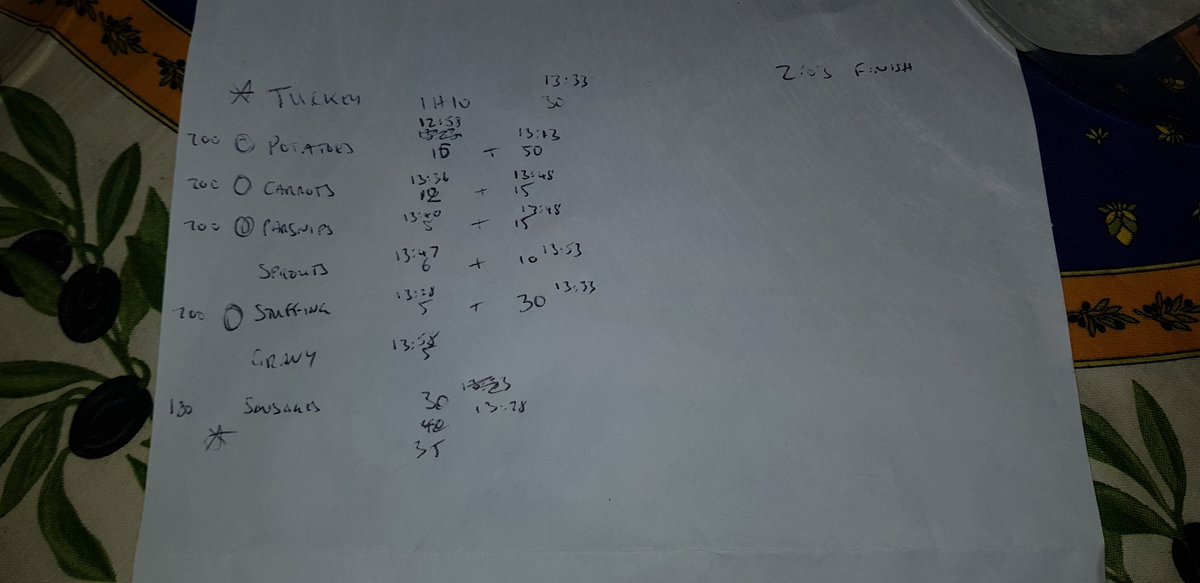 2:03 FINISH
13:33
* TURKEY 1H10 30
12:53 13:13
200 POTATOES 15 + 50
13:36 13:48
200 CARROTS 12 + 15
13:40 13:48
200 PARSNIPS 5 + 15
13:47 13:53
SPROUTS 6 + 10
13:28 13:33
200 STUFFING 5 + 30
13:58
GRAVY 5
180 SAUSAGES 30 13:28
* 40
35